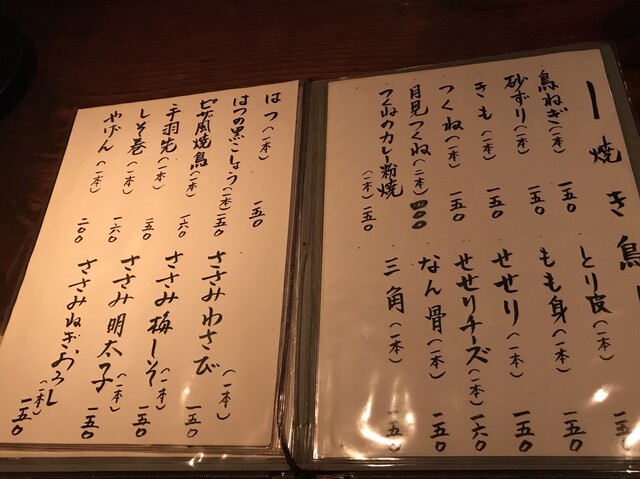 ー焼き鳥ー
鳥ねぎ(一本) 一五〇
砂ずり(一本) 一五〇
きも(一本) 一五〇
つくね(一本) 一五〇
月見つくね(二本) 四〇〇
つくねのカレー粉焼(一本) 一五〇
とり皮(一本) 一五〇
もも身(一本) 一五〇
せせり(一本) 一五〇
せせりチーズ(一本) 一六〇
なん骨(一本) 一五〇
三角(一本) 一五〇
はつ(一本) 一五〇
はつの黒こしょう(一本) 一五〇
ピザ風焼鳥(一本) 一六〇
手羽先(一本) 一五〇
しそ巻(一本) 一六〇
やげん(一本) 二〇〇
ささみわさび(一本) 一五〇
ささみ梅しそ(一本) 一五〇
ささみ明太子(一本) 一五〇
ささみねぎおろし(一本) 一五〇